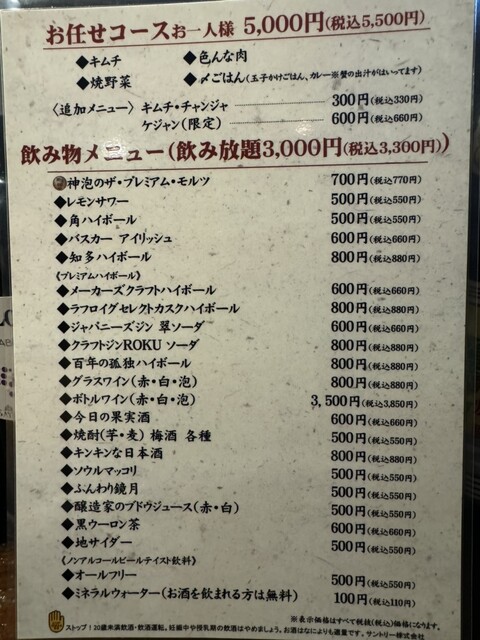 お任せコースお一人様 5,000円(税込5,500円)
◆キムチ ◆色んな肉
◆焼野菜 ◆〆ごはん(玉子かけごはん、カレー※蟹の出汁がはいってます)
〈追加メニュー〉 キムチ・チャンジャ 300円(税込330円)
ケジャン(限定) 600円(税込660円)
飲み物メニュー(飲み放題3,000円(税込3,300円))
神泡のザ・プレミアム・モルツ 700円(税込770円)
◆レモンサワー 500円(税込550円)
◆角ハイボール 500円(税込550円)
◆バスカー アイリッシュ 600円(税込660円)
◆知多ハイボール 800円(税込880円)
《プレミアムハイボール》
◆メーカーズクラフトハイボール 600円(税込660円)
◆ラフロイグセレクトカスクハイボール 800円(税込880円)
◆ジャパニーズジン 翠ソーダ 600円(税込660円)
◆クラフトジンROKU ソーダ 800円(税込880円)
◆百年の孤独ハイボール 800円(税込880円)
◆グラスワイン(赤・白・泡) 800円(税込880円)
◆ボトルワイン(赤・白・泡) 3,500円(税込3,850円)
◆今日の果実酒 600円(税込660円)
◆焼酎(芋・麦) 梅酒 各種 500円(税込550円)
◆キンキンな日本酒 800円(税込880円)
◆ソウルマッコリ 500円(税込550円)
◆ふんわり鏡月 500円(税込550円)
◆醸造家のブドウジュース(赤・白) 500円(税込550円)
◆黒ウーロン茶 600円(税込660円)
◆地サイダー 500円(税込550円)
《ノンアルコールビールテイスト飲料》
◆オールフリー 500円(税込550円)
◆ミネラルウォーター(お酒を飲まれる方は無料) 100円(税込110円)
※表示価格はすべて税抜(税込)価格になります。
ストップ!20歳未満飲酒・飲酒運転。妊娠中や授乳期の飲酒はやめましょう。お酒はなによりも適量です。サントリー株式会社